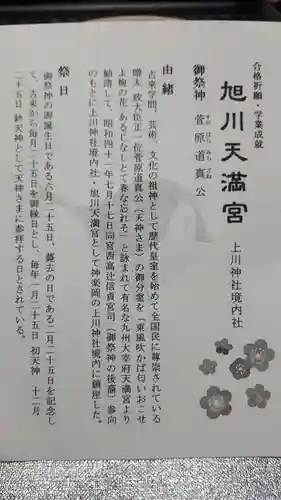 合格祈願・学業成就
旭川天満宮
上川神社境内社
御祭神 菅原道真公
すがはらみちざね
由緒
古来学問、芸術、文化の祖神として歴代皇室を始めて全国民に尊崇されている
贈太政大臣正一位菅原道真公(天神さま)の御分霊を「東風吹かば匂いおこせ
よ梅の花 あるじなしとて春な忘れそ」と詠まれて有名な九州大宰府天満宮より
勧請して、昭和四十一年七月十七日同宮西高辻信貞宮司(御祭神の後裔)参向
のもとに上川神社境内社・旭川天満宮として神楽岡の上川神社境内に鎮座した。
祭日
御祭神の御誕生日である六月二十五日、薨去の日である二月二十五日を記念し
て、古来から毎月二十五日を御縁日とし、毎年一月二十五日 初天神 十二月
二十五日 終天神として天神さまに参拝する日とされている。